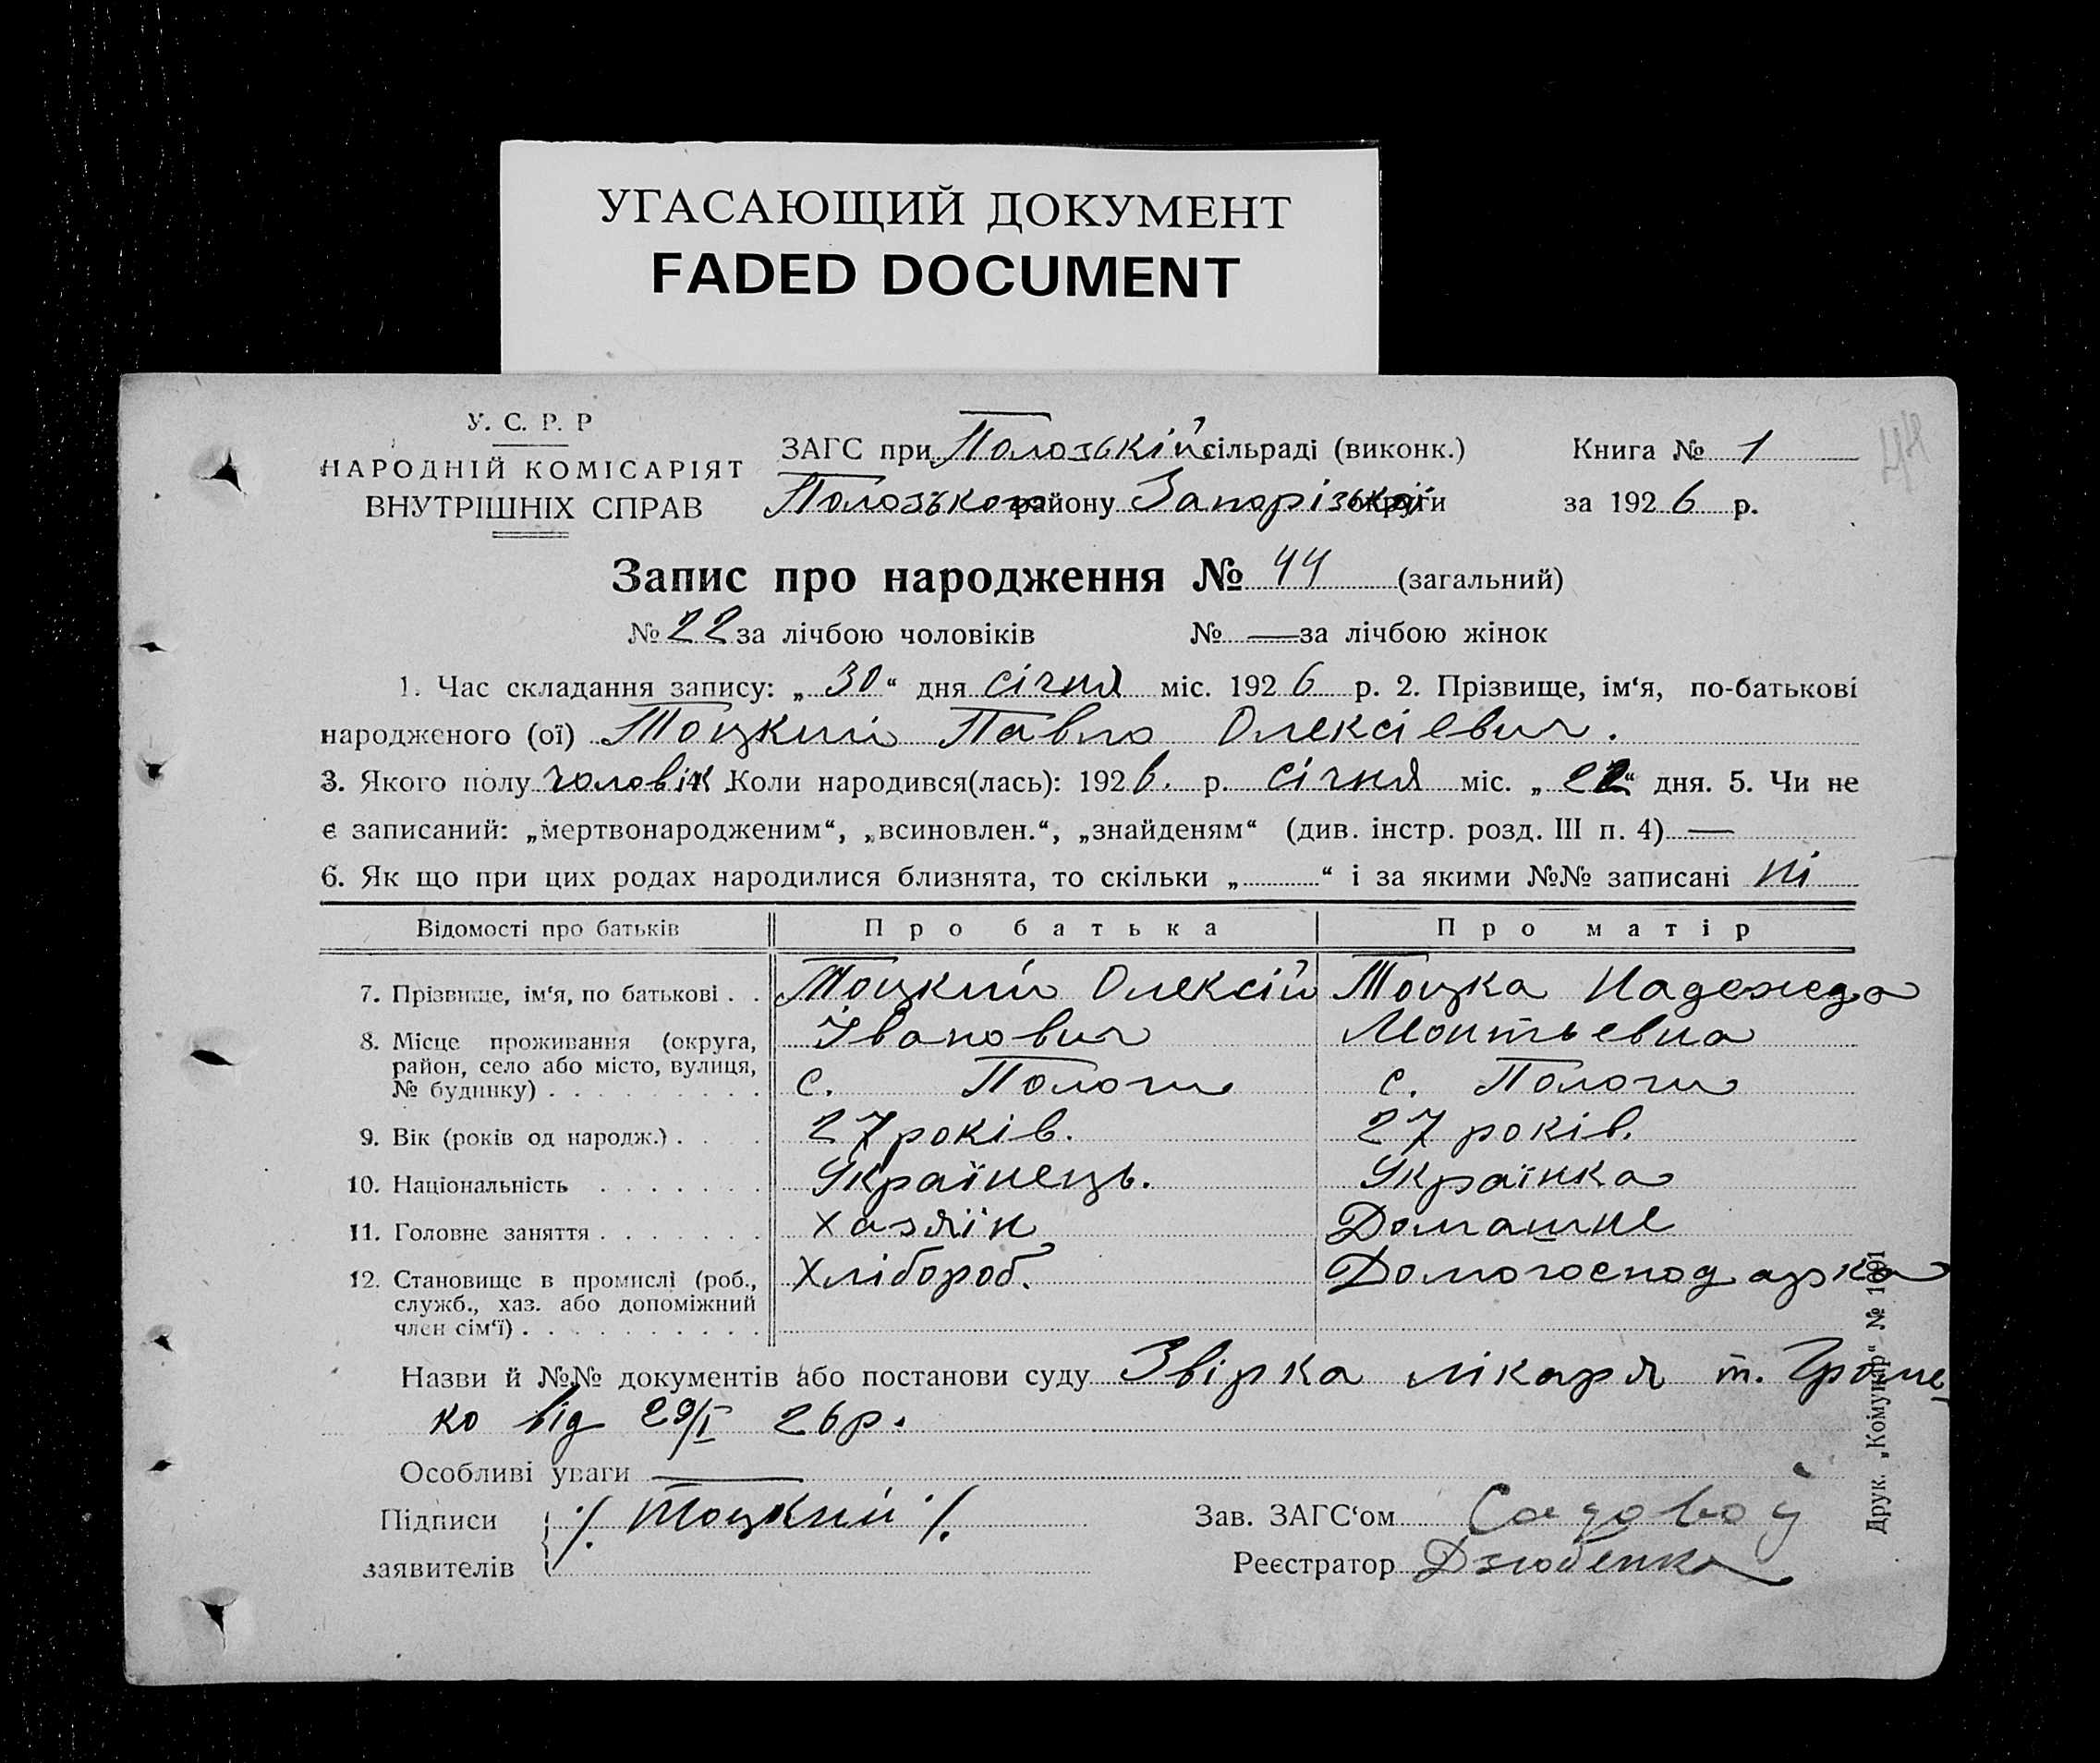 УГАСАЮЩИЙ ДОКУМЕНТ
FADED DOCUMENT
У. С. Р. Р
НАРОДНІЙ КОМІСАРІЯТ
ВНУТРІШНІХ СПРАВ
44
ЗАГС при Полозькій сільраді (виконк.) Книга № 1
Полозького району Запорізької округи за 1926 р.
Запис про народження № 44 (загальний)
№ 22 за лічбою чоловіків № — за лічбою жінок
1. Час складання запису: „30“ дня січня міс. 1926 р. 2. Прізвище, ім‘я, по-батькові
народженого (ої) Тоцкий Павло Олексієвич.
3. Якого полу чоловік 4. Коли народився(лась): 1926. р. січня міс. „22“ дня. 5. Чи не
є записаний: „мертвонародженим“, „всиновлен.“, „знайденям“ (див. інстр. розд. III п. 4) —
6. Як що при цих родах народилися близнята, то скільки „ “ і за якими №№ записані ні
Відомості про батьків Про батька Про матір
7. Прізвище, ім‘я, по батькові . . Тоцкий Олексій Тоцка Надежда
Іванович Монтьевна
8. Місце проживання (округа,
район, село або місто, вулиця,
№ будинку) . . . . . . . . . с. Пологи с. Пологи
9. Вік (років од народж.) . . . 27 років. 27 років.
10. Національність . . . . . . . Українець. Українка
11. Головне заняття . . . . . . . хазяїн Домашнє
12. Становище в промислі (роб.,
служб., хаз. або допоміжний
член сім‘ї) . . . . . . . . . . Хлібороб. Домогосподарка
Назви й №№ документів або постанови суду Звірка лікаря т. Громе-
ко від 29/I 26р.
Особливі уваги —
Підписи
заявителів /. Тоцкий ./.
Зав. ЗАГС‘ом Садовой
Реєстратор Дзюбенко
Друк. „Комунар“ № 1091